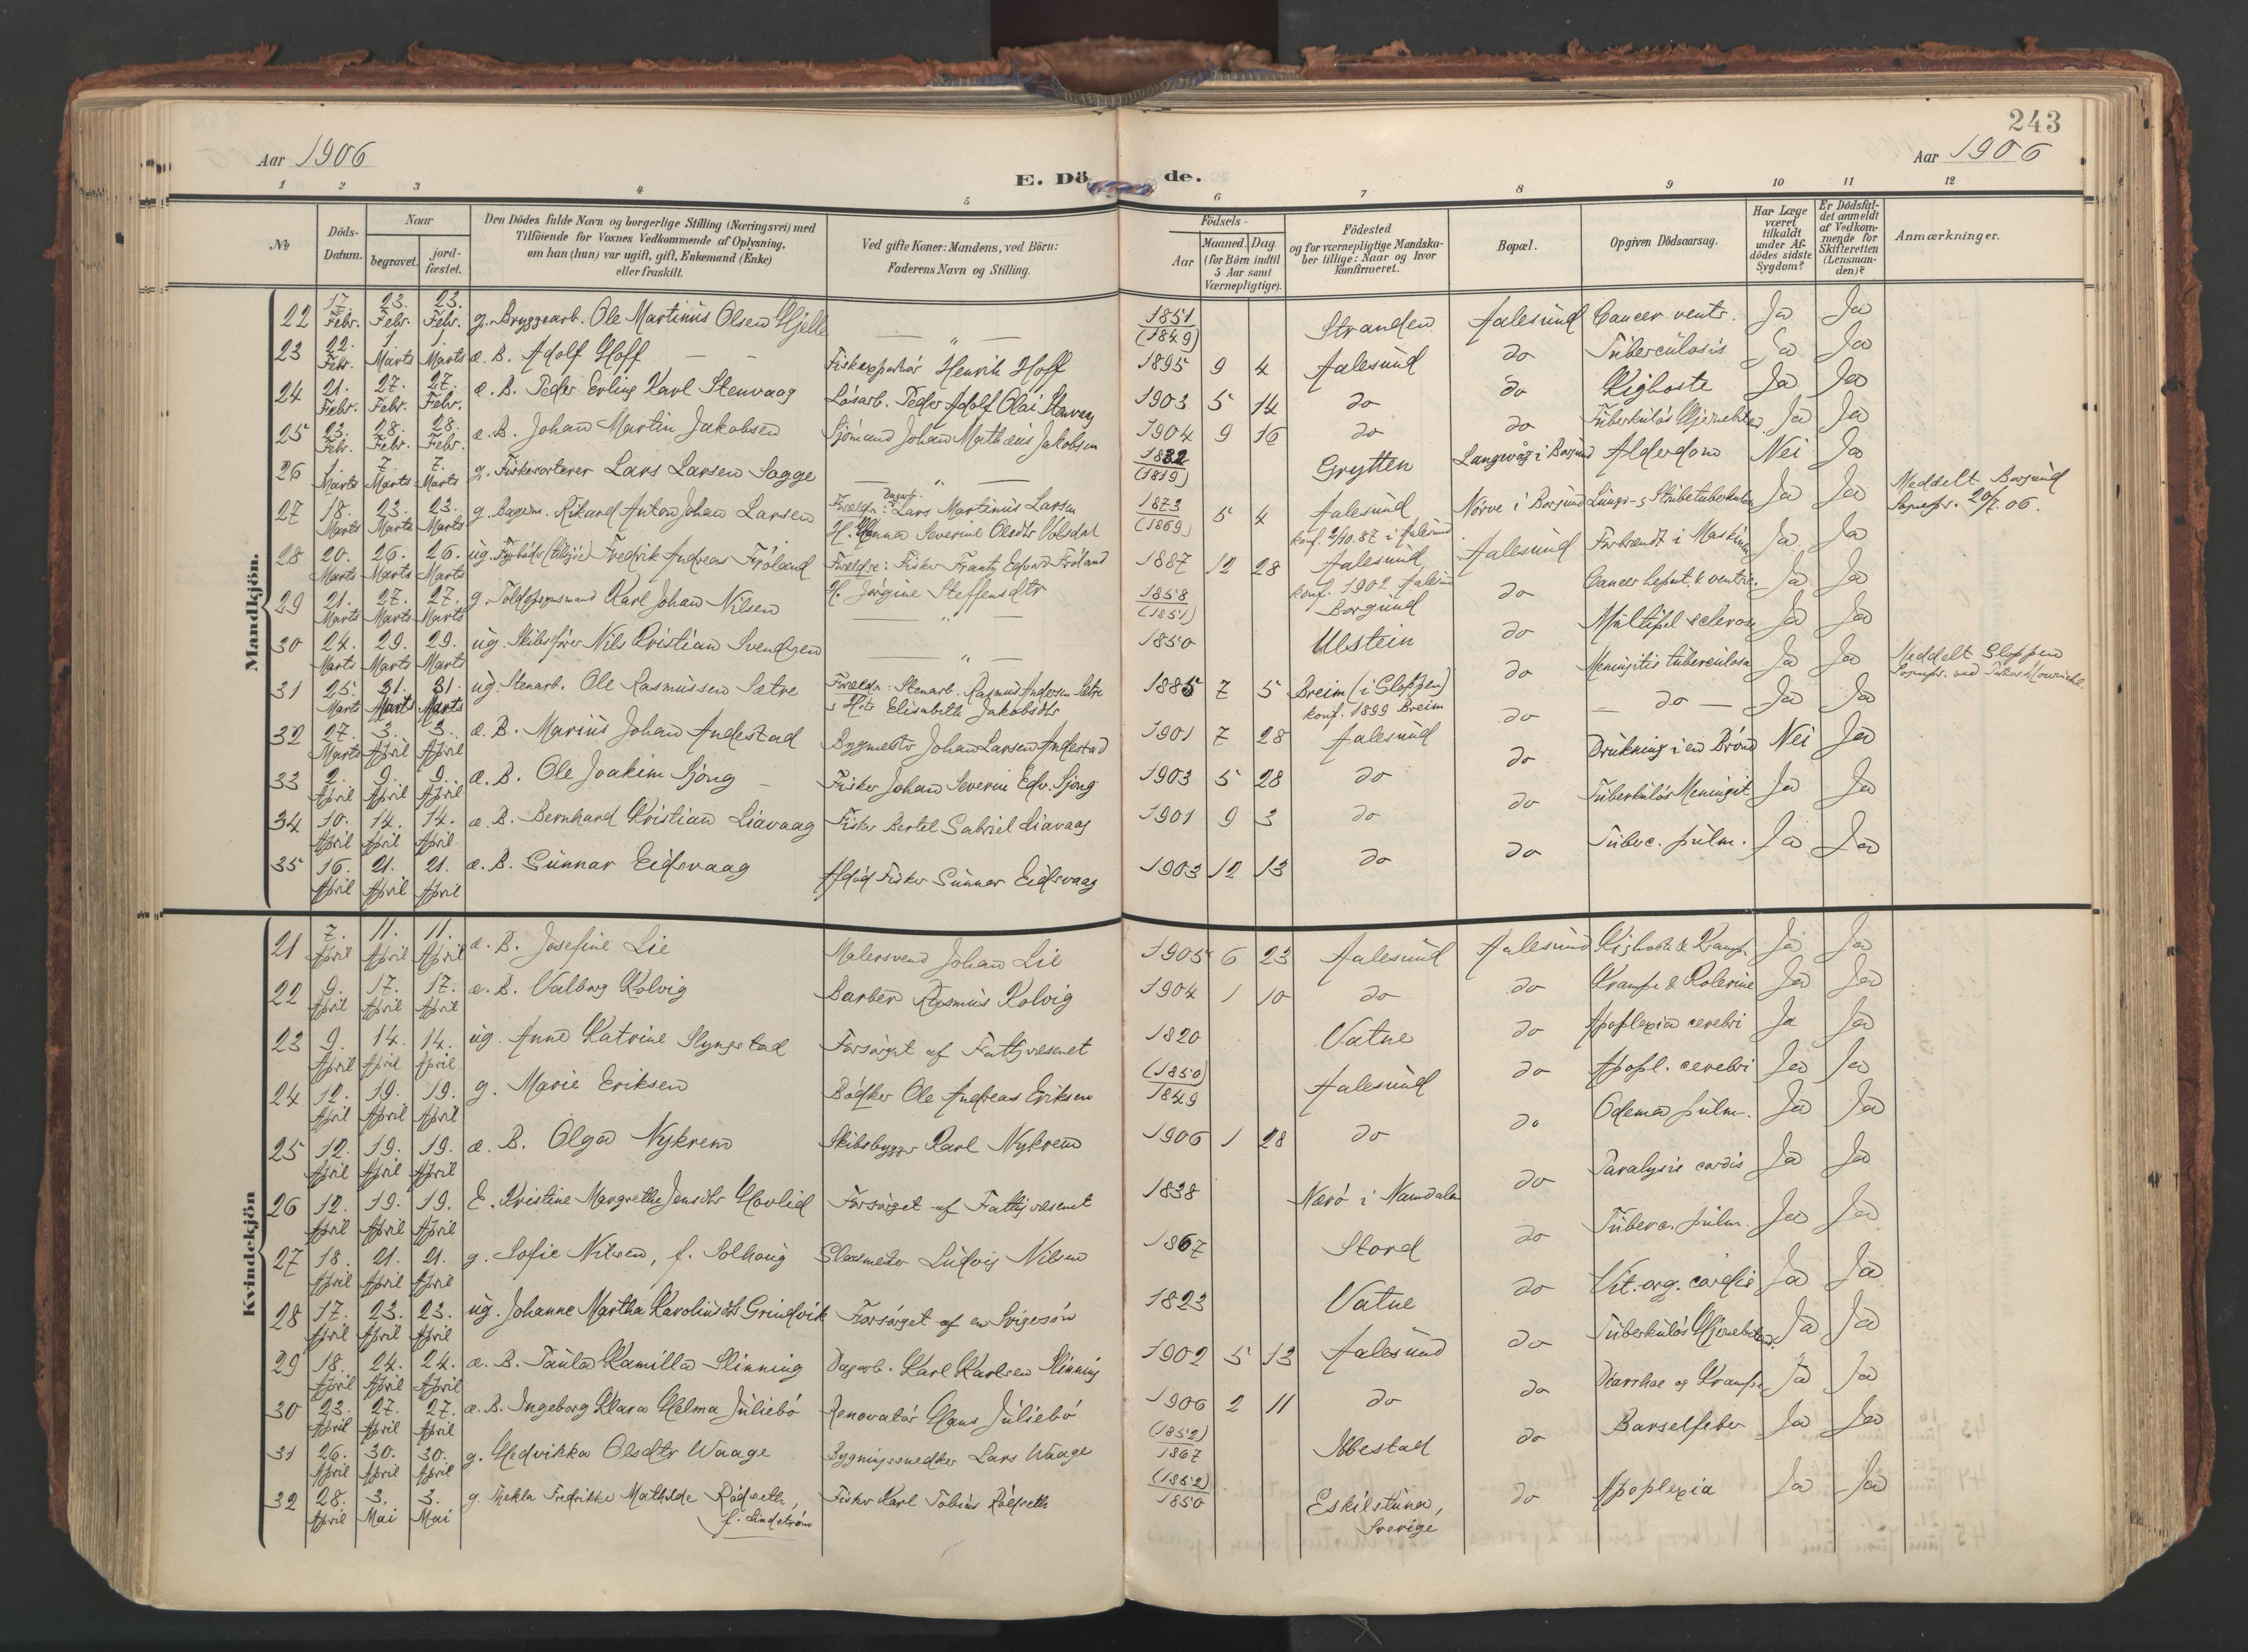 243
Aar 1906
Aar 1906
E. Dö de.
1 2 3 4 5 6 7 8 9 10 11 12
№ Döds-Datum. Naar begravet. jord-fæstet.
Den Dödes fulde Navn og borgerlige Stilling (Næringsvei) med
Tilföiende for Voxnes Vedkommende af Oplysning,
om han (hun) var ugift, gift, Enkemand (Enke)
eller fraskilt.
Ved gifte Koner: Mandens, ved Börn:
Faderens Navn og Stilling.
Födsels-
Aar Maaned. Dag.
(for Börn indtil
5 Aar samt
Værnepligtige).
Födested
og for værnepligtige Mandska-
ber tillige: Naar og hvor
konfirmeret.
Bopæl.
Opgiven Dödsaarsag.
Har Læge
været
tilkaldt
under Af-
dödes sidste
Sygdom?
Er Dödsfal-
det anmeldt
af Vedkom-
mende for
Skifteretten
(Lensman-
den)?
Anmærkninger.
Mandkjön.
22 17. Febr. 23. Febr. 23. Febr. g. Bryggearb. Ole Martinus Olsen Hjelle — „ — 1851 (1849) Stranden Aalesund Cancer ventr. Ja Ja
23 22. Febr. 1. Marts 1. Marts æ. B. Adolf Hoff Fiskexportør Henrik Hoff 1895 9 4 Aalesund do Tuberculosis Ja Ja
24 21. Febr. 27. Febr. 27. Febr. æ. B. Peder Erling Karl Stenvaag Løsarb. Peder Adolf Olai Stenvaag 1903 5 14 do do Kighoste Ja Ja
25 23. Febr. 28. Febr. 28. Febr. æ. B. Johan Martin Jakobsen Sjømand Johan Mathæus Jakobsen 1904 9 16 do do Tuberkuløs Ja Ja
26 1. Marts 7. Marts 7. Marts g. Fiskesorterer Lars Larsen Sagge — „ — 1832 (1819) Grytten Langevåg i Borgund Alderdom Nei Ja
27 18. Marts 23. Marts 23. Marts g. Bagerm. Rikard Anton Johan Larsen Forældr: Dagarb. Lars Martinus Larsen 1873 (1869) 5 4 Aalesund Nørve i Borgund Lunge- & Strubetuberkulose Ja Ja Meddelt Borgund
H. Hanna Severine Olsdtr Volsdal konf. 2/10.87 i Aalesund Sognepr. 20/7.06.
28 20. Marts 26. Marts 26. Marts ug. Fyrbøder (tilsjøs) Fredrik Andreas Frøland Forældre: Fisker Frantz Edvard Frøland 1887 12 28 Aalesund Aalesund Forbrændt i Maskinen Ja Ja
H. Jørgine Steffensdtr konf. 1902 Aalesund
29 21. Marts 27. Marts 27. Marts g. Toldopsynsmand Karl Johan Nilsen — „ — 1858 (1851) Borgund do Cancer hepat. & ventric. Ja Ja
30 24. Marts 29. Marts 29. Marts ug. Skibsfører Nils Kristian Svendsen — „ — 1850 Utstein do Multipel sclerose Ja Ja
31 25. Marts 31. Marts 31. Marts ug. Stenarb. Ole Rasmussen Sætre Forældr: Stenarb. Rasmus Andersen Sætre 1885 7 5 Breim (i Gloppen) do Meningitis tuberculosa Ja Ja Meddelt Gloppen
& H. Elisabeth Jakobsdtr konf. 1899 Breim Sognepr.
32 27. Marts 3. April 3. April æ. B. Marius Johan Andestad Bygmester Johan Larsen Andestad 1901 7 28 Aalesund do — do — Ja Ja
33 2. April 9. April 9. April æ. B. Ole Joakim Sjong Fisker Johan Severin Edv. Sjong 1903 5 28 do do Drukning i en Brønd Nei Ja
34 10. April 14. April 14. April æ. B. Bernhard Kristian Liavaag Fisker Bertel Gabriel Liavaag 1901 9 3 do do Tuberkuløs Meningit Ja Ja
35 16. April 21. April 21. April æ. B. Gunnar Eidsvaag Afdød Fisker Gunnar Eidsvaag 1903 12 13 do do Tuberc. pulm. Ja Ja
Kvindekjön
21 7. April 11. April 11. April æ. B. Josefine Lie Malersvend Johan Lie 1905 6 23 Aalesund Aalesund Kighoste & Krampe Ja Ja
22 9. April 17. April 17. April æ. B. Valborg Kolvig Barber Rasmus Kolvig 1904 1 10 do do Krampe & Kolerine Ja Ja
23 9. April 14. April 14. April ug. Anne Katrine Slyngstad Forsørget af Fattigvesenet 1820 Vatne do Apoplexia cerebri Ja Ja
24 12. April 19. April 19. April g. Marie Eriksen Bødker Ole Andreas Eriksen (1850) 1849 Aalesund do Apopl. cerebri Ja Ja
25 12. April 19. April 19. April æ. B. Olga Nykrem Skibsbygger Karl Nykrem 1906 1 28 do do Odema pulm. Ja Ja
26 12. April 19. April 19. April E. Kristine Margrethe Jensdtr Hovlid Forsørget af Fattigvesenet 1838 Nærø i Namdalen do Paralysis cordis Ja Ja
27 18. April 21. April 21. April g. Sofie Nilsen, f. Solhaug Ludvig Nilsen 1867 Stord do Tuberc. pulm. Ja Ja
28 17. April 23. April 23. April ug. Johanne Martha Karoliusdtr Grindvik Forsørget af en Svigersøn 1823 Vatne do Vit. org. cordis Ja Ja
29 18. April 24. April 24. April æ. B. Paula Kamilla Slinning Dagarb. Karl Karlsen Slinning 1902 5 13 Aalesund do Tuberkuløs Ja Ja
30 23. April 27. April 27. April æ. B. Ingeborg Klara Helma Juliebø Renovatør Hans Juliebø 1906 2 11 do do Diarrhoe og Krampe Ja Ja
31 26. April 30. April 30. April g. Hedvikka Olsdtr Waage Bygningssnedker Lars Waage (1852) 1867 Ibbestad do Barselfeber Ja Ja
32 28. April 3. Mai 3. Mai g. Thekla Fredrikke Mathilde Rødseth, Fisker Karl Tobias Rødseth (1852) 1850 Eskilstuna, do Apoplexia Ja Ja
f. Lindstrøm Sverige